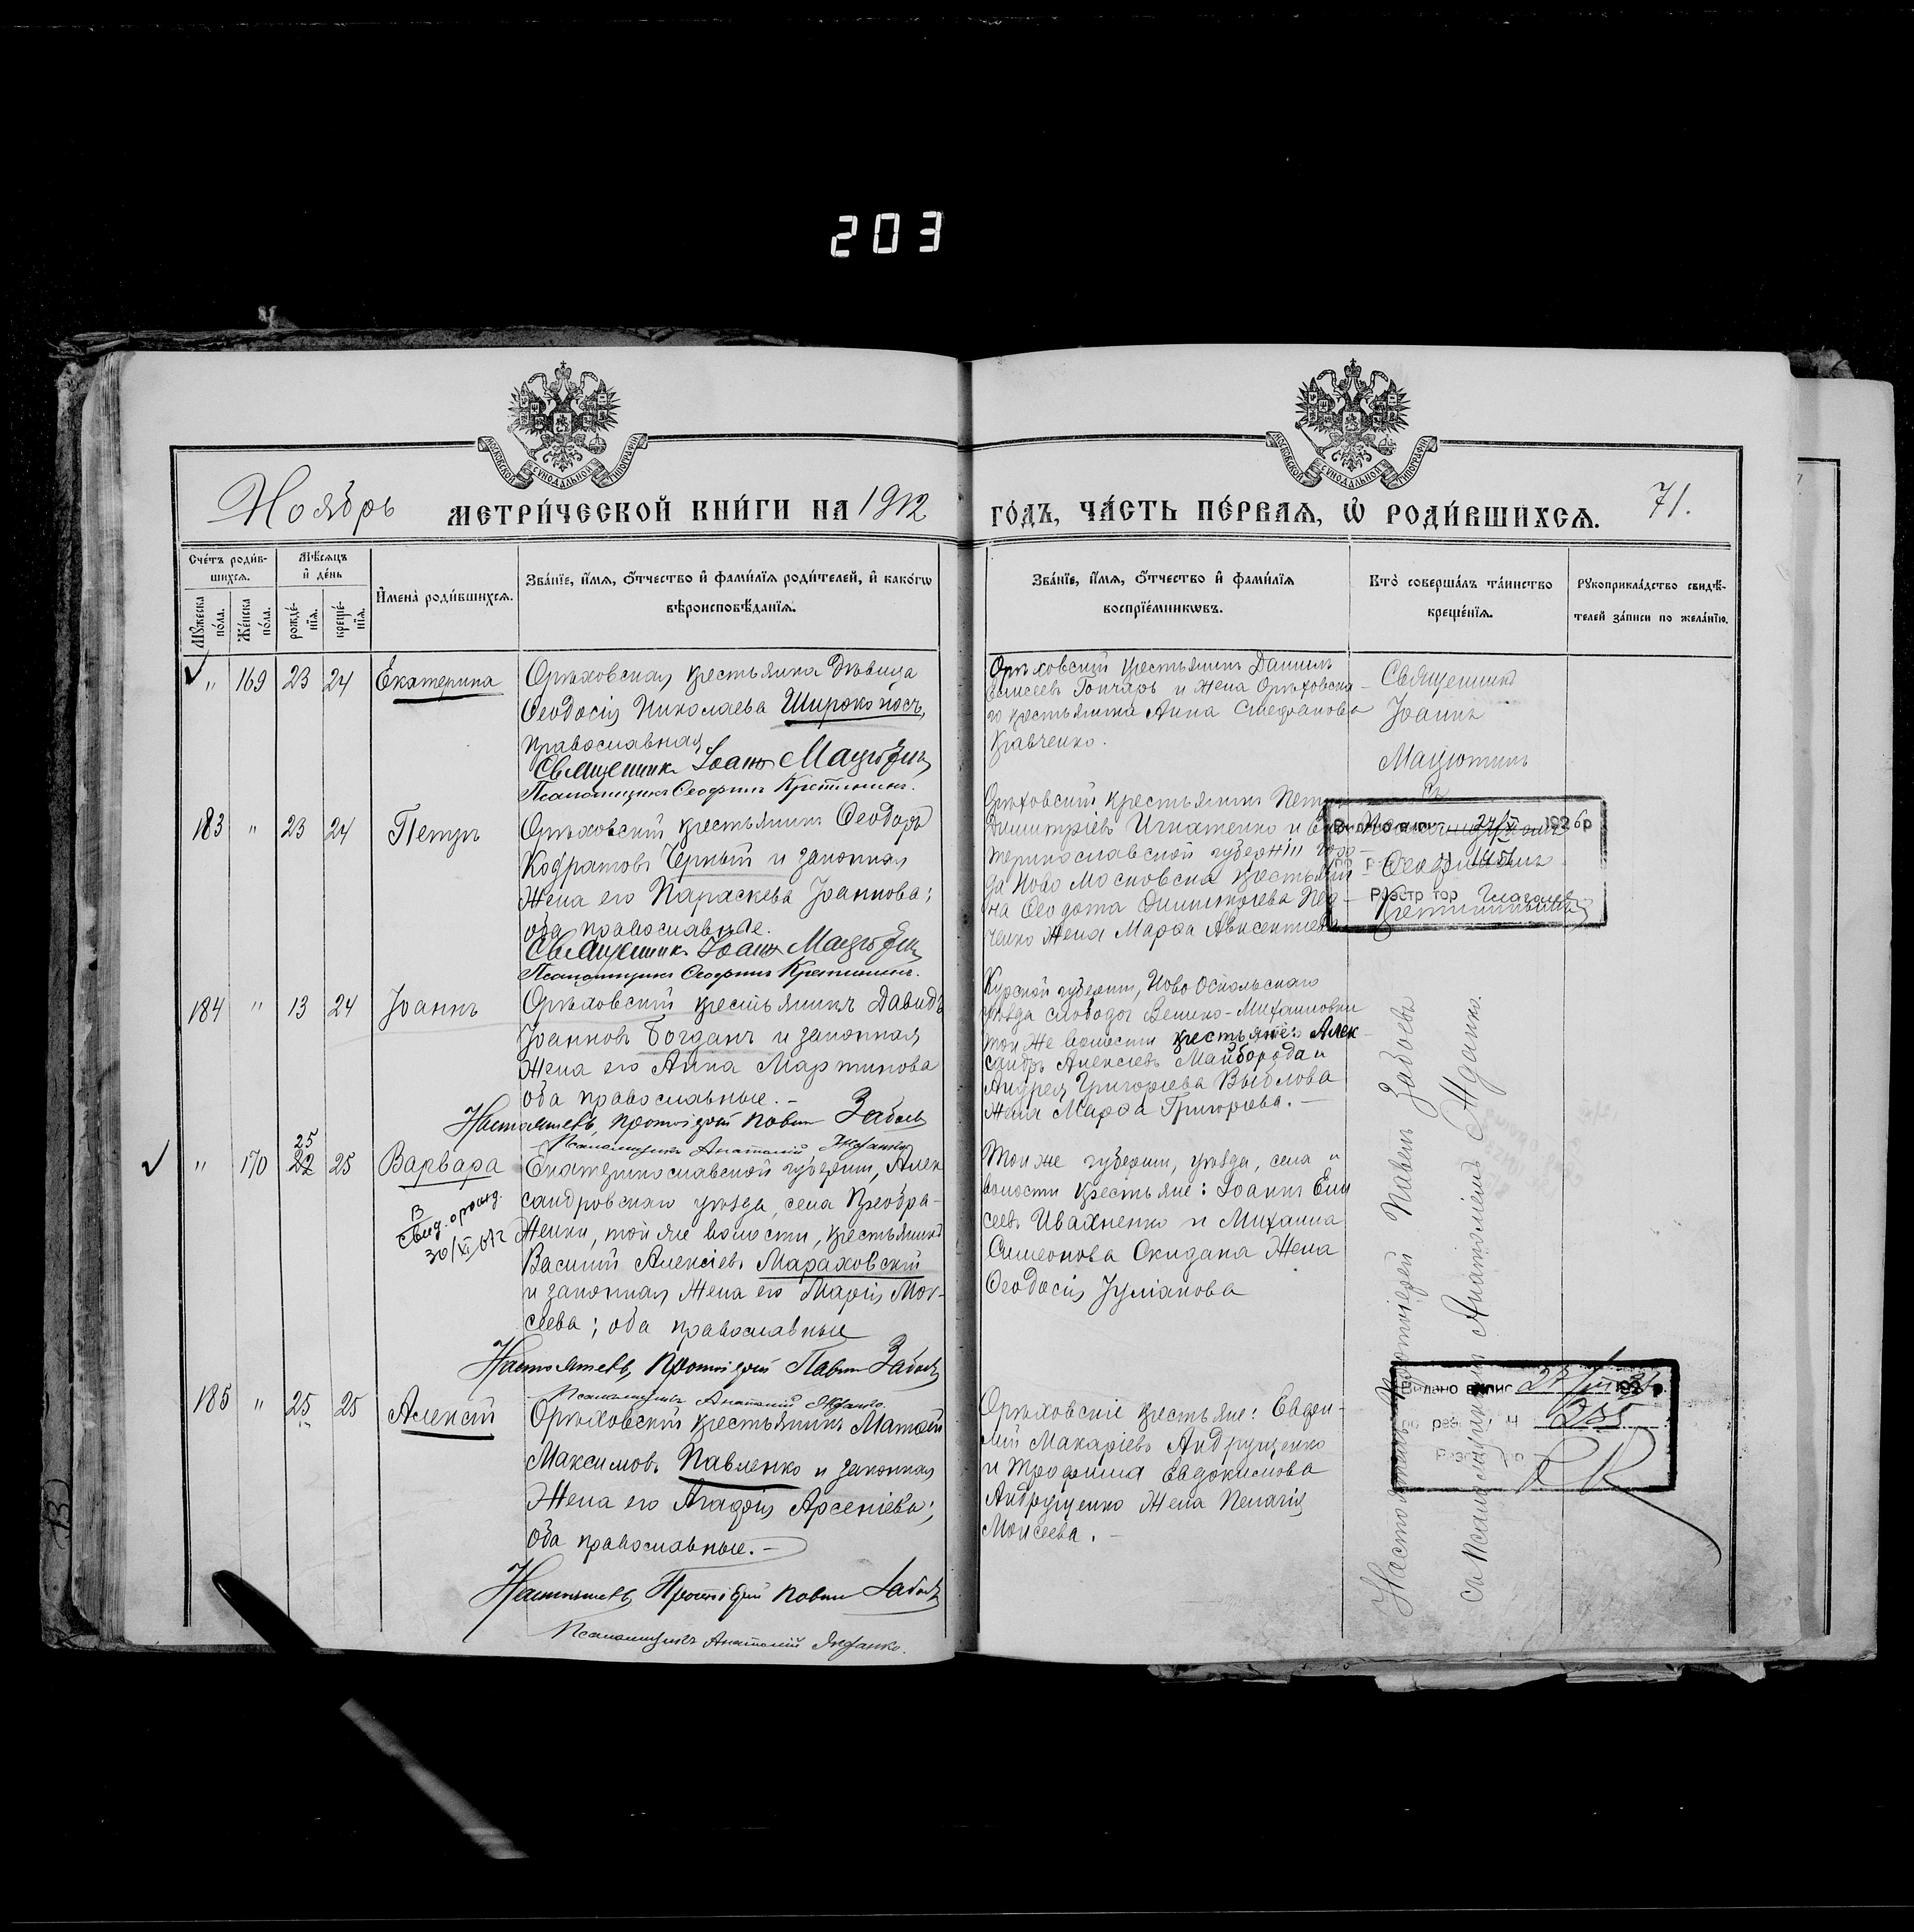 203
МОСКОВСКОЙ СУНОДАЛЬНОЙ ТИПОГРАФІИ
МОСКОВСКОЙ СУНОДАЛЬНОЙ ТИПОГРАФІИ
Ноябрь МЕТРИ́ЧЕСКОЙ КНИ́ГИ НА 1912 ГО́ДЪ, ЧА́СТЬ ПЕ́РВАЯ, Ѡ҆ РОДИ́ВШИХСЯ. 71.
Сче́тъ роди́в-
шихся.
Мѣ́сяцъ
и҆ де́нь
Мꙋ́жеска по́ла.
Же́нска по́ла.
рожде́-
нїя.
креще́-
нїя.
И҆мена̀ роди́вшихся.
Зва́нїе, и҆́мя, ѻ҆́тчество и҆ фами́лїя роди́телей, и҆ како́гѡ
вѣроисповѣ́данїя.
Зва́нїе, и҆́мя, ѻ҆́тчество и҆ фами́лїя
воспрїе́мникѡвъ.
Кто̀ соверша́лъ та́инство
креще́нїя.
Рꙋкоприкла́дство свидѣ́-
телей за́писи по жела́нїю.
" 169 23 24 Екатерина
Орѣховская крестьянка дѣвица
Ѳеодосія Николаева Широконосъ,
православная
Священникъ Іоаннъ Мацютинъ
Псаломщикъ Ѳеофилъ Кретининъ.
Орѣховскій крестьянинъ Даніилъ
Елисеевъ Гончаръ и жена Орѣховска-
го крестьянина Анна Стефановa
Кравченко.
Священникъ
Іоаннъ
Мацютинъ
съ
183 " 23 24 Петръ
Орѣховскій крестьянинъ Ѳеодоръ
Кодратовъ Черный и законная
жена его Параскева Іоаннова;
оба православные.
Священникъ Іоаннъ Мацютинъ
Псаломщикъ Ѳеофилъ Кретининъ.
Орѣховскій крестьянинъ Петръ
Димитріевъ Игнатенко и Ека-
теринославской губерніи горо-
да Ново Московска крестьяни-
на Ѳеодота Димитріева
жена Марѳа
Видано випис 1926р
Реєстр тор
184 " 13 24 Іоаннъ
Орѣховскій крестьянинъ Давидъ
Іоанновъ Богданъ и законная
жена его Анна Мартинова
оба православные. -
Настоятель, протоіерей Павелъ Забоевъ
Псаломщикъ Анатолій Жданко
Курской губерніи, Ново Оскольскаго
уѣзда слободы Велико-Михайловки
той же волости крестьяне: Алек-
сандръ Алексіевъ Майборода и
Андрея Григоріева
жена Марѳа Григорьева. -
" 170 25 22 25 Варвара
Екатеринославской губерніи, Алек
сандровскаго уѣзда, села Преобра-
женки, той же волости, крестьянинъ
Василій Алексіевъ Мараховскій
и законная жена его Марія Мои-
сеева; оба православные
Настоятель, протоіерей Павелъ Забоевъ
Псаломщикъ Анатолій Жданко.
Той же губерніи, уѣзда, села и
волости крестьяне: Іоаннъ Ели
сеевъ Ивахненко и Михаила
Симеонова Скидана жена
Ѳеодосія Іуліанова
185 " 25 25 Алексій
Орѣховскій крестьянинъ Матѳей
Максимовъ Павленко и законная
жена его Агафія Арсеніева;
оба православные. -
Настоятель, Протоіерей Павелъ Забоевъ
Псаломщикъ Анатолій Жданко.
Орѣховскіе крестьяне: Евфи-
мій Макаріевъ Андрущенко
и Трофима Евдокимова
Андрущенко жена Пелагія
Моисеева. -
Настоятель Протоіерей Павелъ Забоевъ
съ Псаломщикомъ Анатоліемъ Жданко.
Видано випис
235